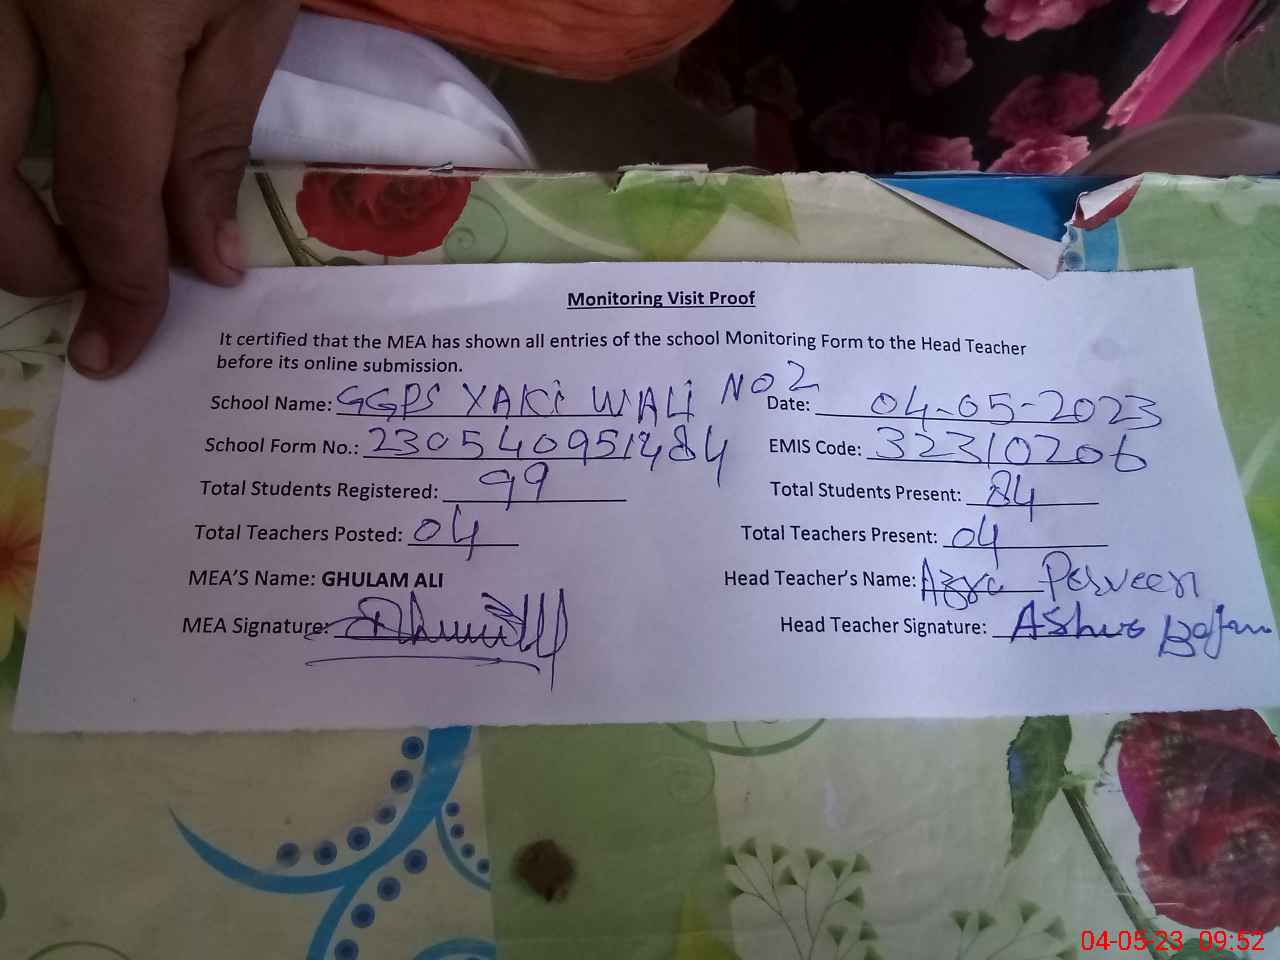 Monitoring Visit Proof
It certified that the MEA has shown all entries of the school Monitoring Form to the Head Teacher
before its online submission.
School Name: GGPS YAKI WALI NO 2 Date: 04-05-2023
School Form No.: EMIS Code: 32310206
Total Students Registered: 99 Total Students Present: 84
Total Teachers Posted: 04 Total Teachers Present: 04
MEA'S Name: GHULAM ALI Head Teacher's Name: Azra Perveen
MEA Signature: Head Teacher Signature:
04-05-23 09:52